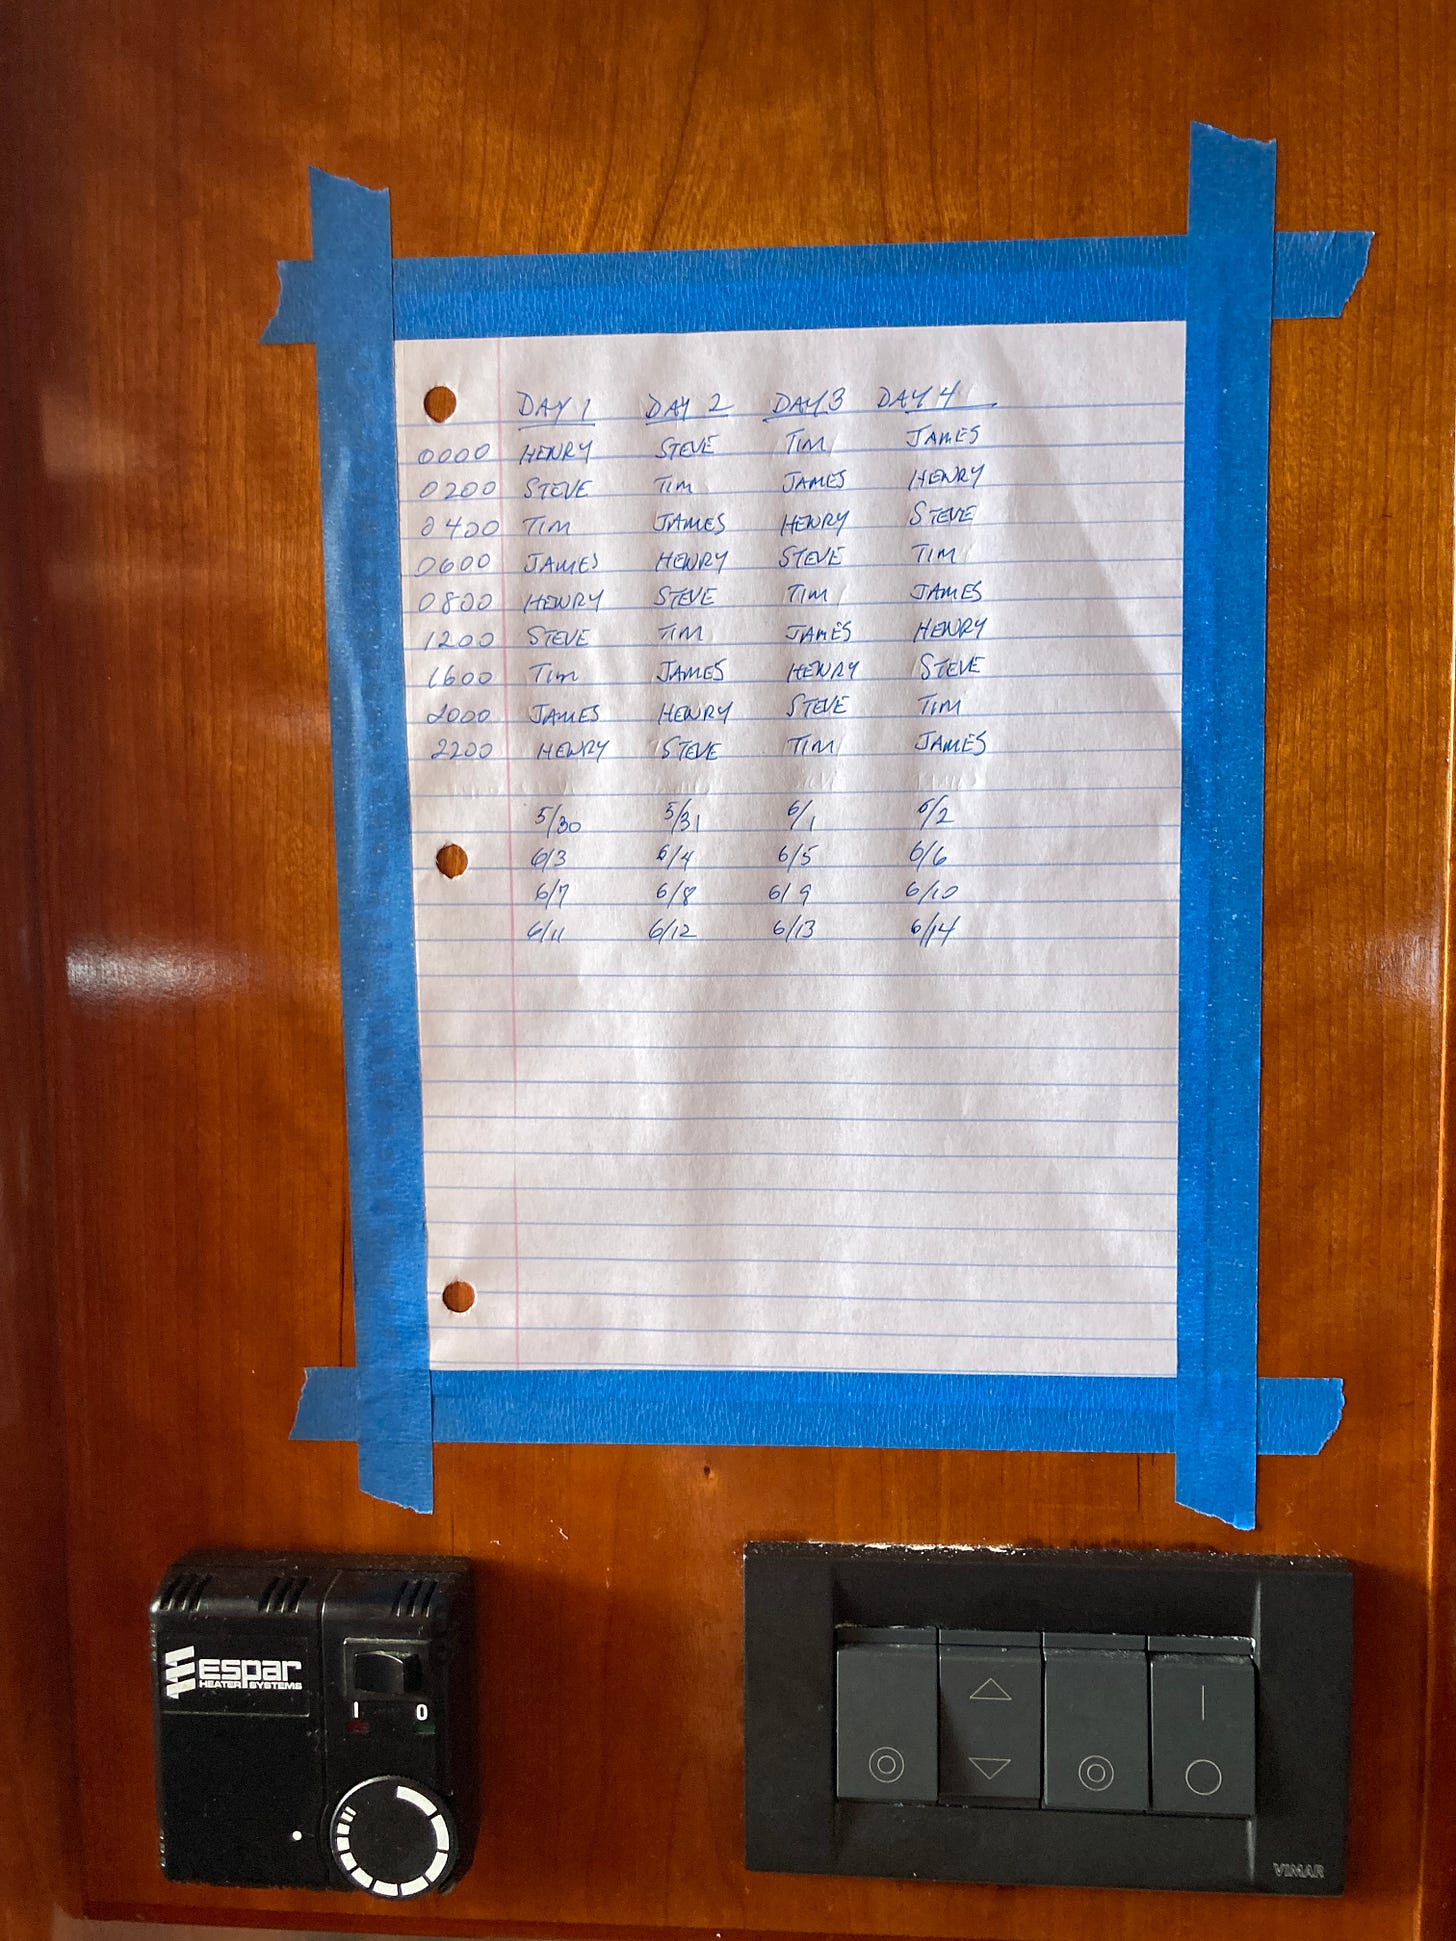 DAY 1 DAY 2 DAY 3 DAY 4
0000 HENRY STEVE TIM JAMES
0200 STEVE TIM JAMES HENRY
0400 TIM JAMES HENRY STEVE
0600 JAMES HENRY STEVE TIM
0800 HENRY STEVE TIM JAMES
1200 STEVE TIM JAMES HENRY
1600 TIM JAMES HENRY STEVE
2000 JAMES HENRY STEVE TIM
2200 HENRY STEVE TIM JAMES
5/30 5/31 6/1 6/2
6/3 6/4 6/5 6/6
6/7 6/8 6/9 6/10
6/11 6/12 6/13 6/14
espar
HEATER SYSTEMS
I 0
VIMAR